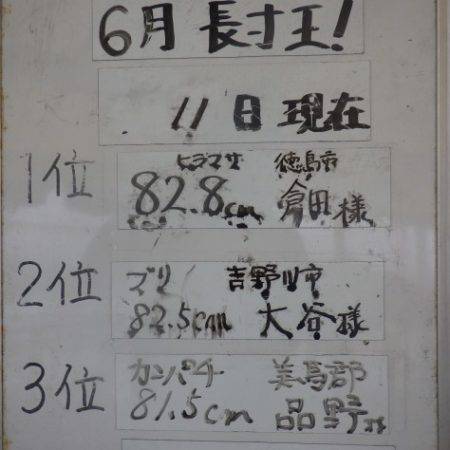 6月 長寸王!
11日 現在
1位 ヒラマサ 徳島市
82.8cm 倉田様
2位 ブリ 吉野川市
82.5cm 大谷様
3位 カンパチ 美馬郡
81.5cm 品野様